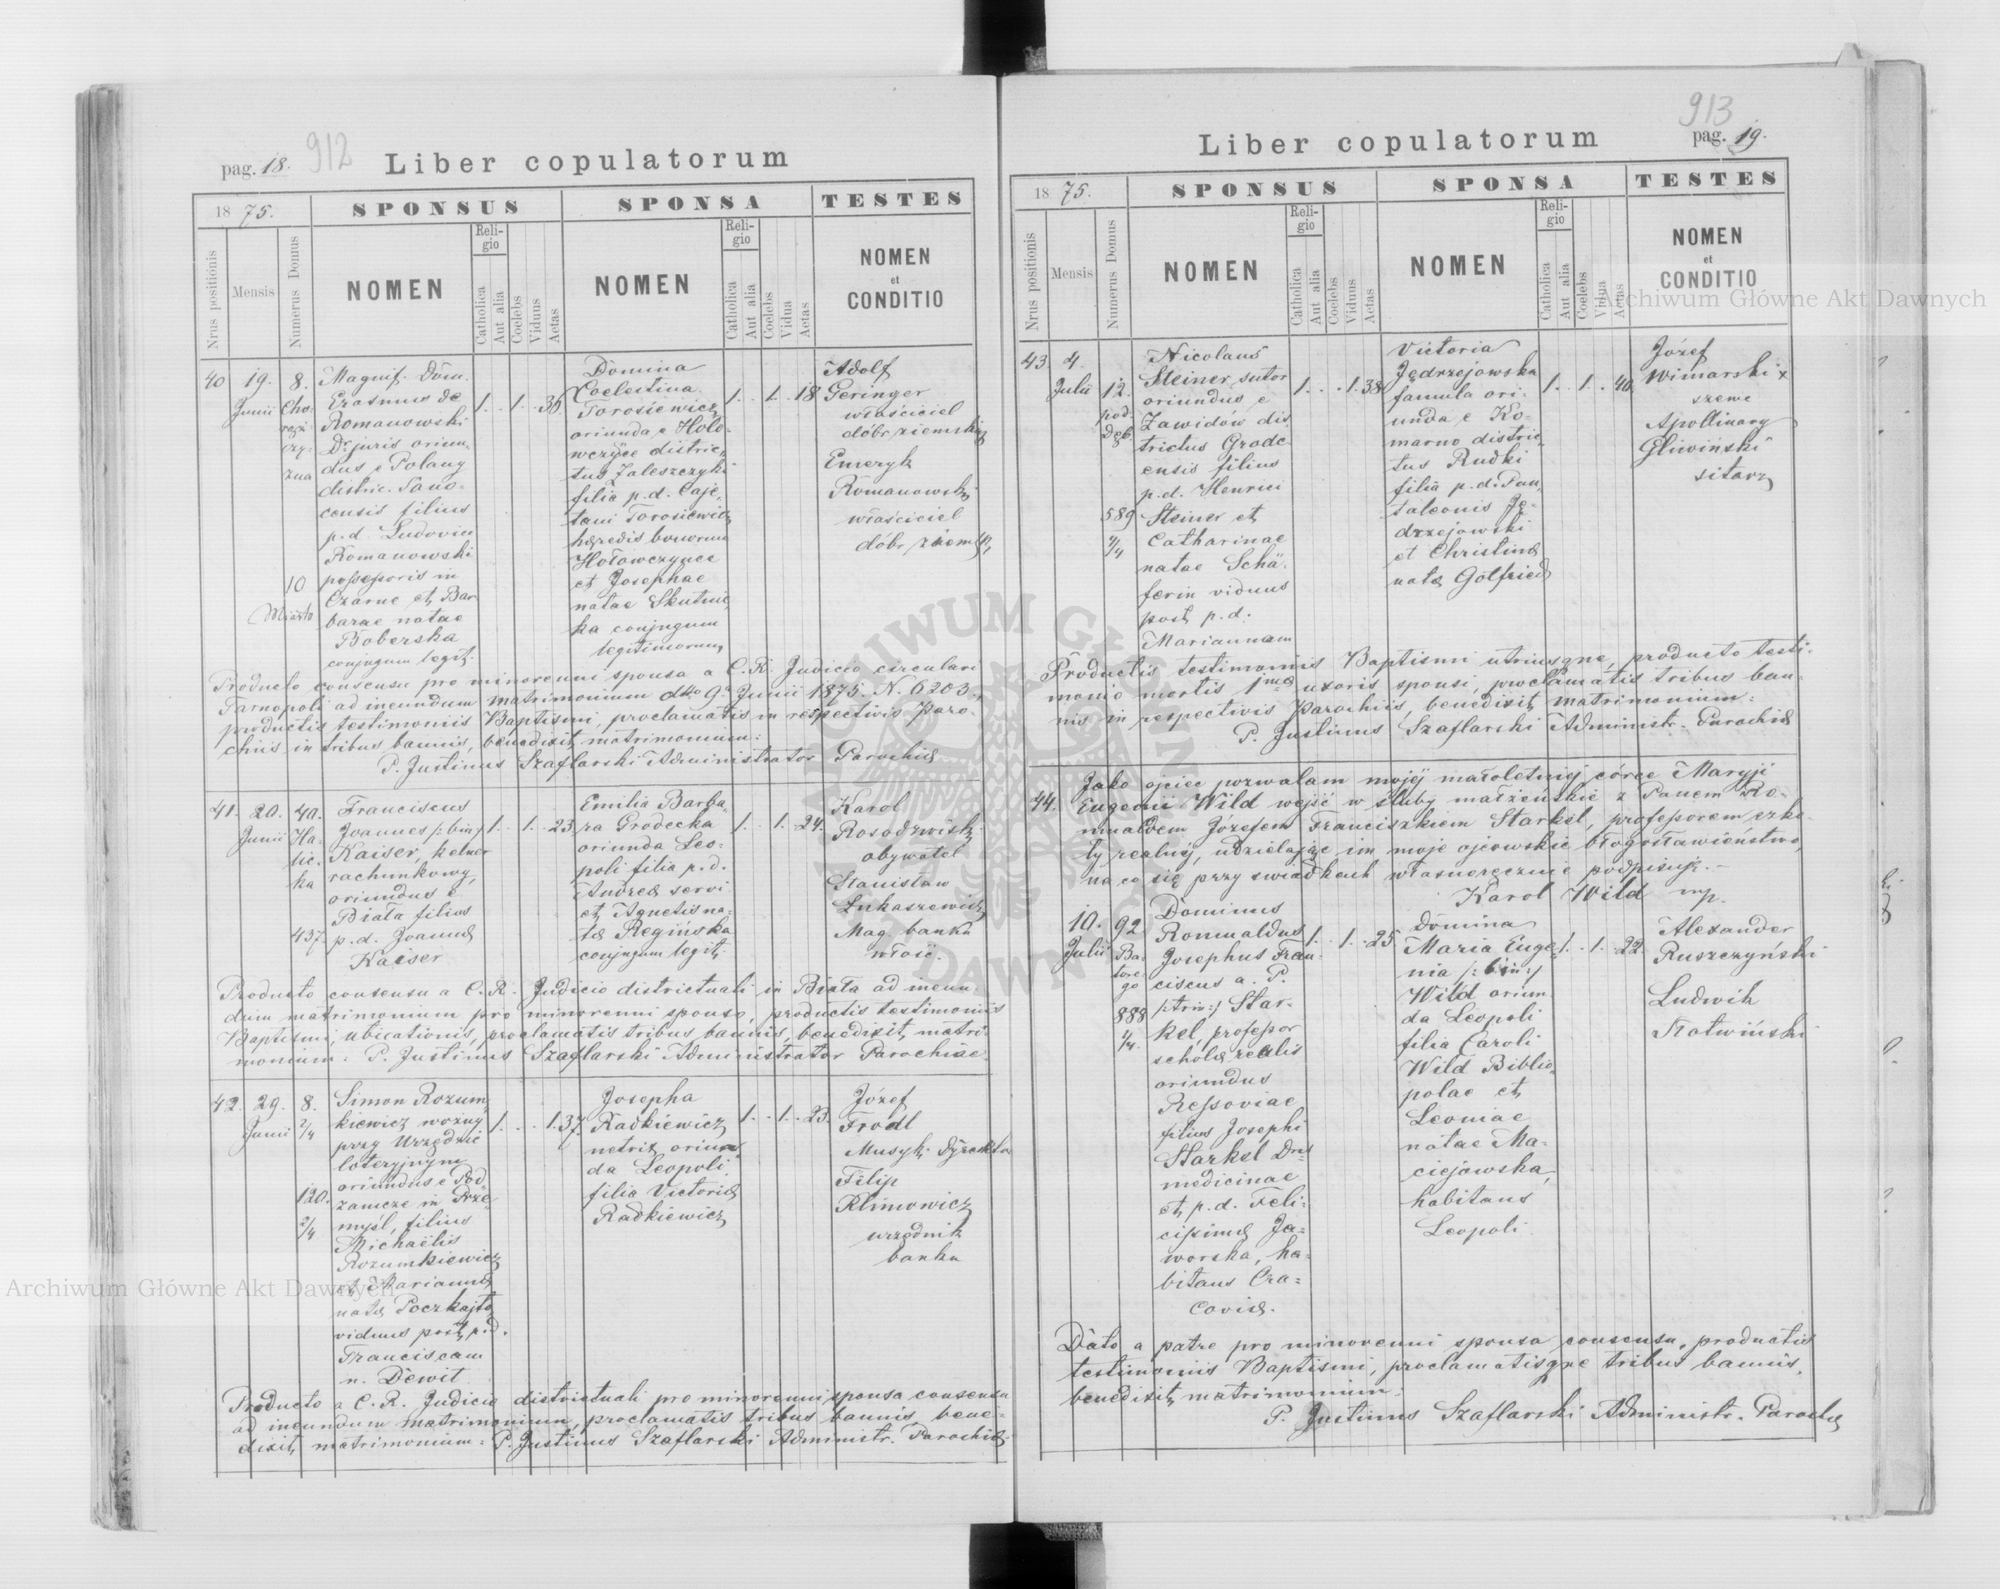 912
pag. 18.
Liber copulatorum
1875.
SPONSUS
SPONSA
TESTES
Nrus positionis
Mensis
Numerus Domus
NOMEN
Religio
Catholica
Aut alia
Coelebs
Viduus
Aetas
NOMEN
Religio
Catholica
Aut alia
Coelebs
Vidua
Aetas
NOMEN
et
CONDITIO
40
19.
Junii
8.
Cho-
rąż-
czy-
zna
10
Miasto
Magnif. Dom.
Erasmus de
Romanowski
Dr juris oriun-
dus e Polany
distric. Sano-
censis filius
p.d. Ludovici
Romanowski
possessoris in
Czarne et Bar-
barae natae
Boberska
conjugum legit.
1. . 1. . 36.
Domina
Coelestina
Torosiewicz
oriunda e Holo-
wczyńce distric-
tus Zaleszczyki
filia p.d. Caje-
tani Torosiewicz
hæredis bonorum
Hołowczynce
et Josephae
natae Skutnic-
ka conjugum
legitimorum
1. . 1. . 18
Adolf
Geringer
właściciel
dóbr ziemskich
Emeryk
Romanowski
właściciel
dóbr ziemsk.
Producto consensu pro minorenni sponsa a C.R. Judicio circulari
Tarnopoli ad ineundum matrimonium dtto 9. Junii 1875. N. 6203.,
productis testimoniis Baptismi, proclamatis in respectivis Paro-
chiis in tribus bannis, benedixit matrimonium:
P. Justinus Szaflarski Administrator Parochiæ
41.
20.
Junii
40.
Ha-
lic-
ka
437.
Franciscus
Joannes /: bin:/
Kaiser, kelner
rachunkowy,
oriundus e
Biała filius
p.d. Joannæ
Kaiser
1. . 1. . 23.
Emilia Barba-
ra Grodecka
oriunda Leo-
poli filia p.d.
Andreæ servi
et Agnetis na-
tæ Regińska
conjugum legit.
1. . 1. . 24.
Karol
obywatel
Stanisław
Łukaszewicz
Mag. banku
włość.
Producto consensu a C.R. Judicio districtuali in Biała ad ineun-
dum matrimonium pro minorenni sponso, productis testimoniis
Baptismi, ubicationis, proclamatis tribus bannis, benedixit matri-
monium: P. Justinus Szaflarski Administrator Parochiae.
42.
29.
Junii
8.
2/4
120.
2/4
Simon Rozum-
kiewicz woźny
przy Urzędzie
loteryjnym
oriundus e Pod-
zamcze in Prze-
myśl, filius
Michaëlis
Rozumkiewicz
et Mariannæ
natæ Poczkajto
viduus post p.d.
Franciscam
n. Dewit
1. . . 1. 37.
Josepha
Radkiewicz
netrix oriun-
da Leopoli,
filia Victoriæ
Radkiewicz
1. . 1. . 23.
Józef
Frodl
Musyk. Dyrektor
Filip
Klimowicz
urzędnik
banku
Producto a C.R. Judicio districtuali pro minorenni sponsa consensu
ad ineundum matrimonium, proclamatis tribus bannis, bene-
dixit matrimonium: P. Justinus Szaflarski Administr. Parochiæ
913
pag. 19.
Liber copulatorum
1875.
SPONSUS
SPONSA
TESTES
Nrus positionis
Mensis
Numerus Domus
NOMEN
Religio
Catholica
Aut alia
Coelebs
Viduus
Aetas
NOMEN
Religio
Catholica
Aut alia
Coelebs
Vidua
Aetas
NOMEN
et
CONDITIO
43
4.
Julii
12.
pod
Dęb.
589
4/4
Nicolaus
Steiner sutor
oriundus e
Zawidów dis-
trictus Grode-
censis filius
p.d. Henrici
Steiner et
Catharinae
natae Schä-
ferin viduus
post p.d.
Mariannam
1. . . 1. 38.
Victoria
Jędrzejowska
famula ori-
unda e Ko-
marno distric-
tus Rudki
filia p.d. Pan-
taleonis Ję-
drzejowski
et Christinæ
natæ Golfried
1. . 1. . 40.
Józef
Winiarski x
szewc
Apollinary
Gliwiński
sitarz
Productis testimoniis Baptismi utriusque, producto testi-
monio mortis 1mæ uxoris sponsi, proclamatis tribus ban-
nis in respectivis Parochiis, benedixit matrimonium:
P. Justinus Szaflarski Administr. Parochiæ
44.
Jako ojciec pozwalam mojéj małoletniéj córce Maryji
Eugenii Wild wejść w śluby małżeńskie z Panem Ro-
mualdem Józefem Franciszkiem Starkel, professorem szko-
ły realnéj, udzielając im moje ojcowskie błogosławieństwo,
na co się przy świadkach własnoręcznie podpisuję.-
Karol Wild mp.
10.
Julii
92
Ba-
tore-
go
888
1/4.
Dominus
Romualdus
Josephus Fran-
ciscus a. P.
/:trin:/ Star-
kel, professor
scholæ realis
oriundus
Ressoviae
filius Josephi
Starkel Dris
medicinae
et p.d. Feli-
cissimæ Ja-
worska, ha-
bitans Cra-
coviæ.
1. . 1. . 25.
Domina
Maria Euge-
nia /: bin:/
Wild oriun-
da Leopoli
filia Caroli
Wild Biblio-
polae et
Leoniae
natae Ma-
ciejowska,
habitans
Leopoli.
1. . 1. . 22.
Alexander
Ruszczyński
Ludwik
Kotwiński
Dato a patre pro minorenni sponsa consensu, productis
testimoniis Baptismi, proclamatisque tribus bannis,
benedixit matrimonium:
P. Justinus Szaflarski Administr. Parochiæ
Archiwum Główne Akt Dawnych
Archiwum Główne Akt Dawnych
ARCHIWUM GŁÓWNE AKT DAWNYCH